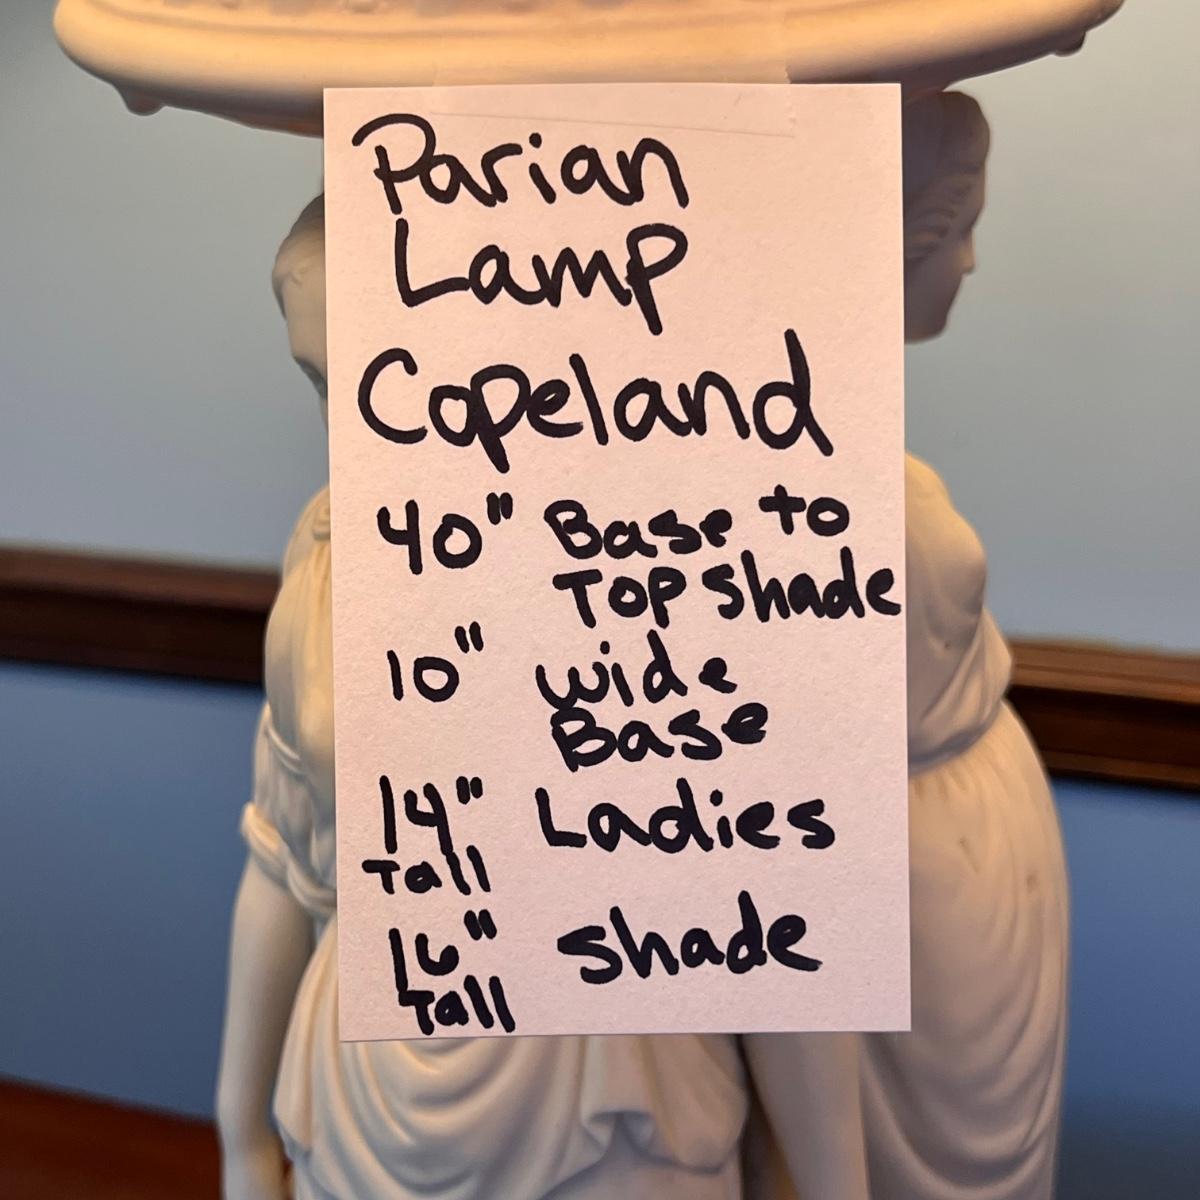 Parian
Lamp
Copeland
40" Base to
Top Shade
10" wide
Base
14" Ladies
Tall
16" Shade
Tall